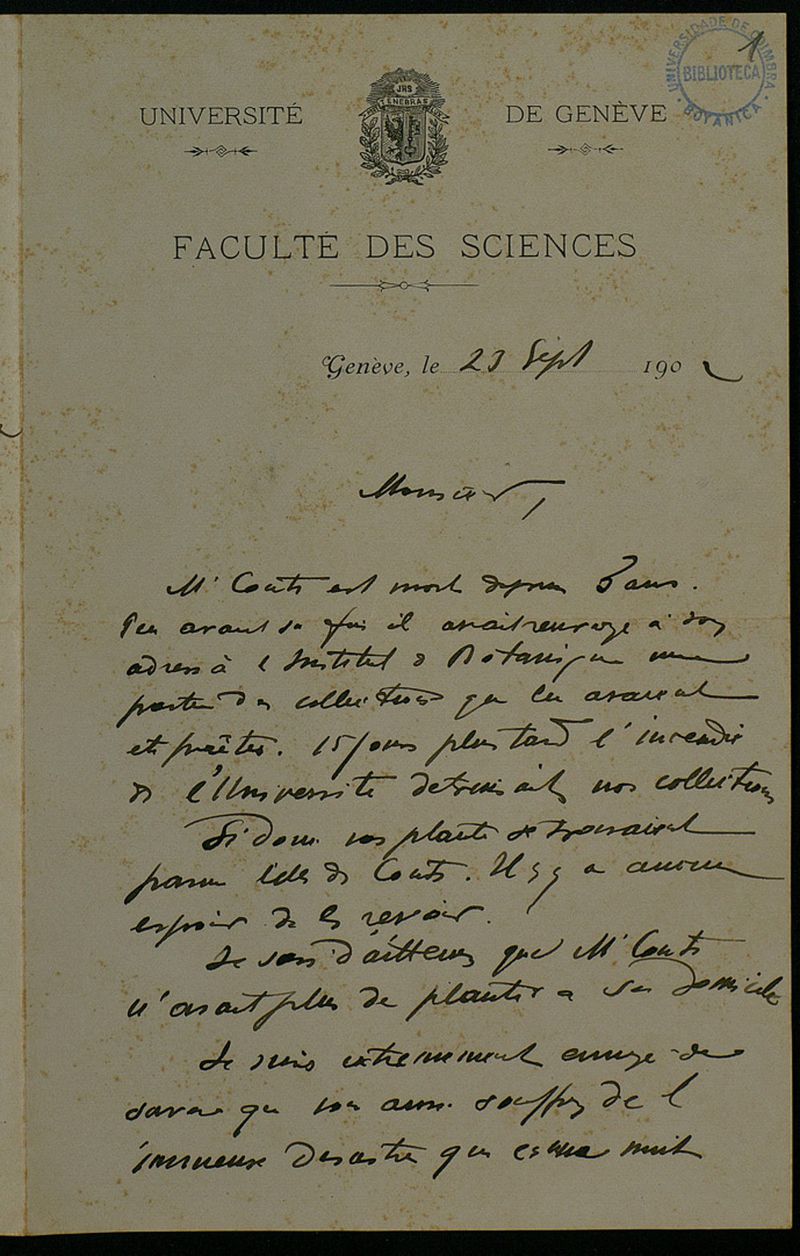 UNIVERSIDADE DE COIMBRA
BIBLIOTECA
BOTANICA
1
JRS
TENEBRAS
UNIVERSITÉ DE GENÈVE
FACULTÉ DES SCIENCES
Genève, le 23 Sept 1902
Monsieur,
Mr est mort depuis 3 ans.
Peu avant sa fin il avait renvoyé à son
adresse à l'Institut de Botanique une
partie des collections qui lui avaient
été prêtées. 15 jours plus tard l'incendie
de l'Université detruisait nos collections
Si donc vos plantes se trouvaient
parmi celles de. Il n'y a aucun
espoir de les revoir.
Je sais d'ailleurs que Mr
n'avait plus de plantes a son domicile
Je suis extremement ennuyé de
savoir que vous aussi souffrez de l
immense desastre qui en une nuit